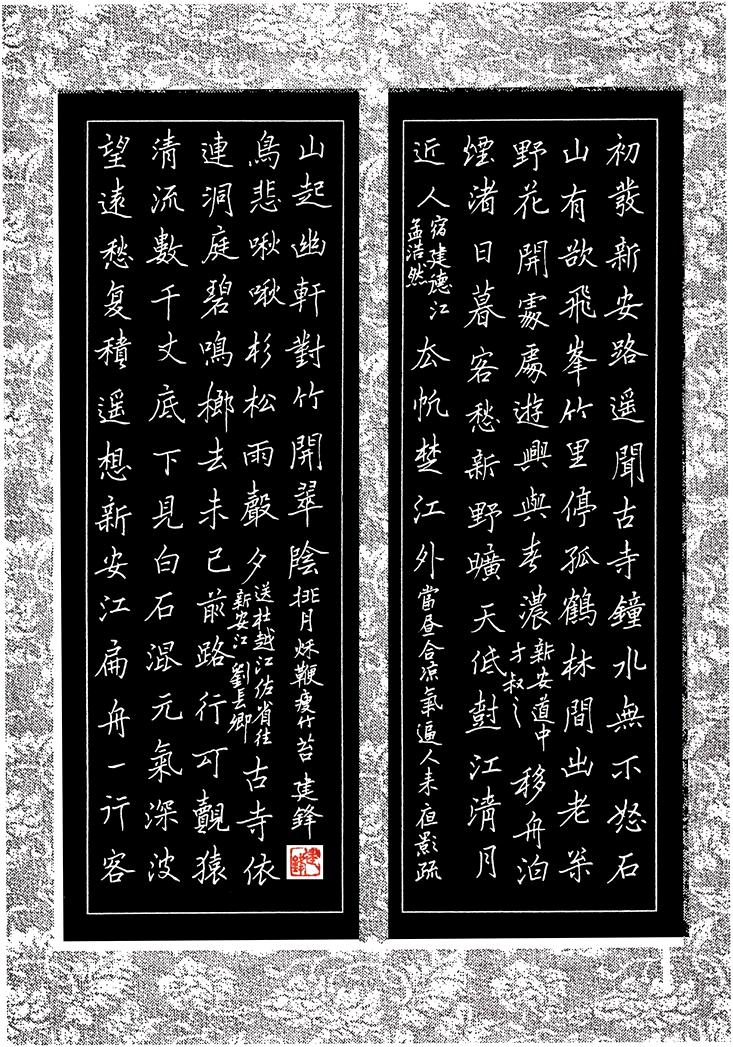 初發新安路遥聞古寺鐘水無不怒石
山有欲飛峯竹里停孤鶴林間出老
野花開處處遊興與春濃
新安道中
才叔之
移舟泊
煙渚日暮客愁新野曠天低尌江清月
近人
宿建德江
孟浩然
厺帆楚江外
當昼合凉氣逼人未夜影疏
望遠愁复積遥想新安江扁舟一行客
清流數千丈底下見白石混元氣深波
連洞庭碧鳴榔去未已前路行可覿猿
鳥悲啾啾杉松雨聲夕
送杜越江佐省往
新安江 劉長卿
古寺依
山起幽軒對竹開翠陰
月鞭瘦竹苔
建鋒
建鋒